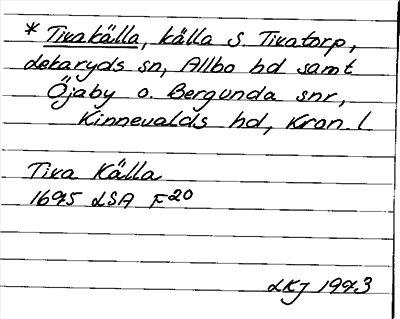 * Tivakälla, källa S. Tivatorp,
Lekaryds sn, Allbo hd samt
Öjaby o. Bergunda snr,
Kinnevalds hd, Kron. l.
Tiva Källa
1695 LSA F20
LKJ 1993